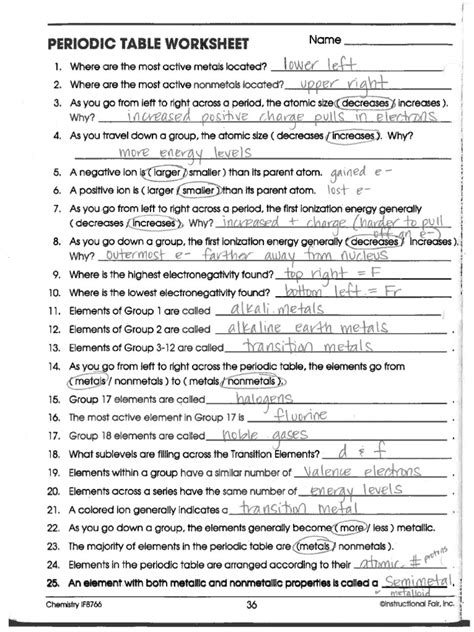 PERIODIC TABLE WORKSHEET Name
1. Where are the most active metals located? lower left
2. Where are the most active nonmetals located? upper right
3. As you go from left to right across a period, the atomic size ( decreases / increases ).
Why? increased positive charge pulls in electrons
4. As you travel down a group, the atomic size ( decreases / increases ). Why?
more energy levels
5. A negative ion is ( larger / smaller ) than its parent atom. gained e-
6. A positive ion is ( larger / smaller ) than its parent atom. lost e-
7. As you go from left to right across a period, the first ionization energy generally
( decreases / increases ). Why? increased + charge (harder to pull
off an e-)
8. As you go down a group, the first ionization energy generally ( decreases / increases ).
Why? outermost e- farther away from nucleus
9. Where is the highest electronegativity found? top right = F
10. Where is the lowest electronegativity found? bottom left = Fr
11. Elements of Group 1 are called alkali metals
12. Elements of Group 2 are called alkaline earth metals
13. Elements of Group 3-12 are called transition metals
14. As you go from left to right across the periodic table, the elements go from
( metals / nonmetals ) to ( metals / nonmetals ).
15. Group 17 elements are called halogens
16. The most active element in Group 17 is fluorine
17. Group 18 elements are called noble gases
18. What sublevels are filling across the Transition Elements? d & f
19. Elements within a group have a similar number of valence electrons
20. Elements across a series have the same number of energy levels
21. A colored ion generally indicates a transition metal
22. As you go down a group, the elements generally become ( more / less ) metallic.
23. The majority of elements in the periodic table are ( metals / nonmetals ).
24. Elements in the periodic table are arranged according to their atomic # protons
25. An element with both metallic and nonmetallic properties is called a Semimetal.
metalloid
Chemistry IF8766 36 ©Instructional Fair, Inc.